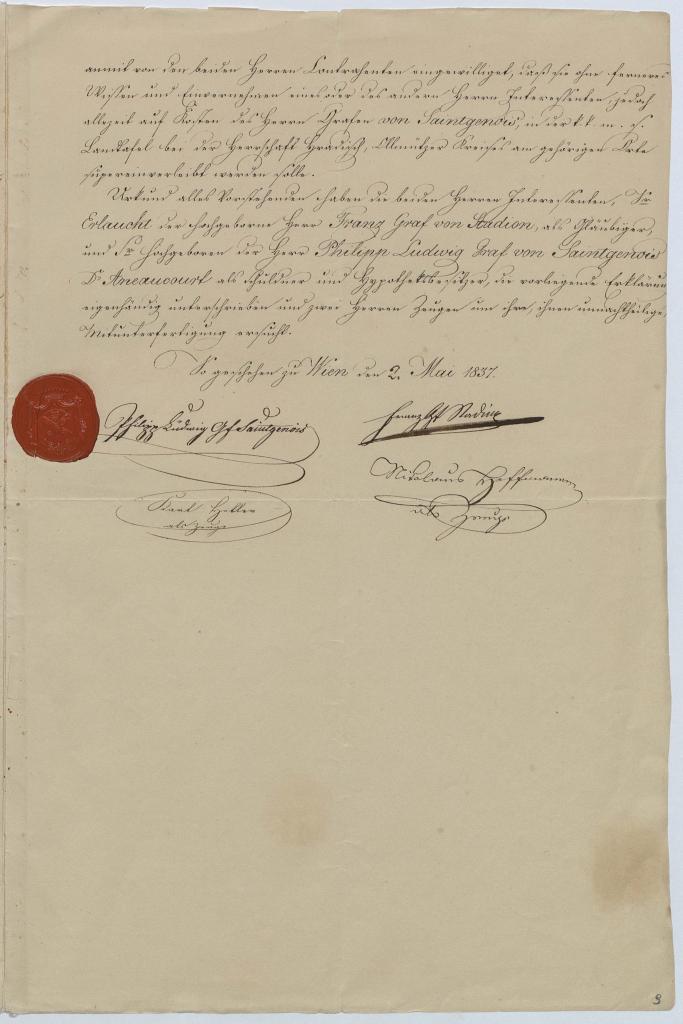 anmit von den beiden Herren Contrahenten eingewilliget, daß sie ohne ferneres
Wissen und Einvernehmen eines oder des andern Herrn Interessenten, jedoch
allezeit auf Kosten des Herrn Grafen von Saintgenois, in der k. k. m. s.
Landtafel bei der Herrschaft Hradisch, Ollmützer Kreises am gehörigen Orte
supereinverleibt werden solle.
Urkund alles Vorstehenden haben die beiden Herren Interessenten, Sr
Erlaucht der hochgeborne Herr Franz Graf von Stadion, als Gläubiger,
und Sr Hochgeboren der Herr Philipp Ludwig Graf von Saintgenois
D'Aneaucourt als Schuldner und Hypotheksbesitzer, die vorliegende Erklärung
eigenhändig unterschrieben und zwei Herren Zeugen um ihre, ihnen unnachtheilige
Mitunterfertigung ersucht.
So geschehen zu Wien den 2. Mai 1837.
Philipp Ludwig Gf Saintgenois
Franz Gf Stadion
Nikolaus Hoffmann
als Zeuge
Karl Heller
als Zeuge
9